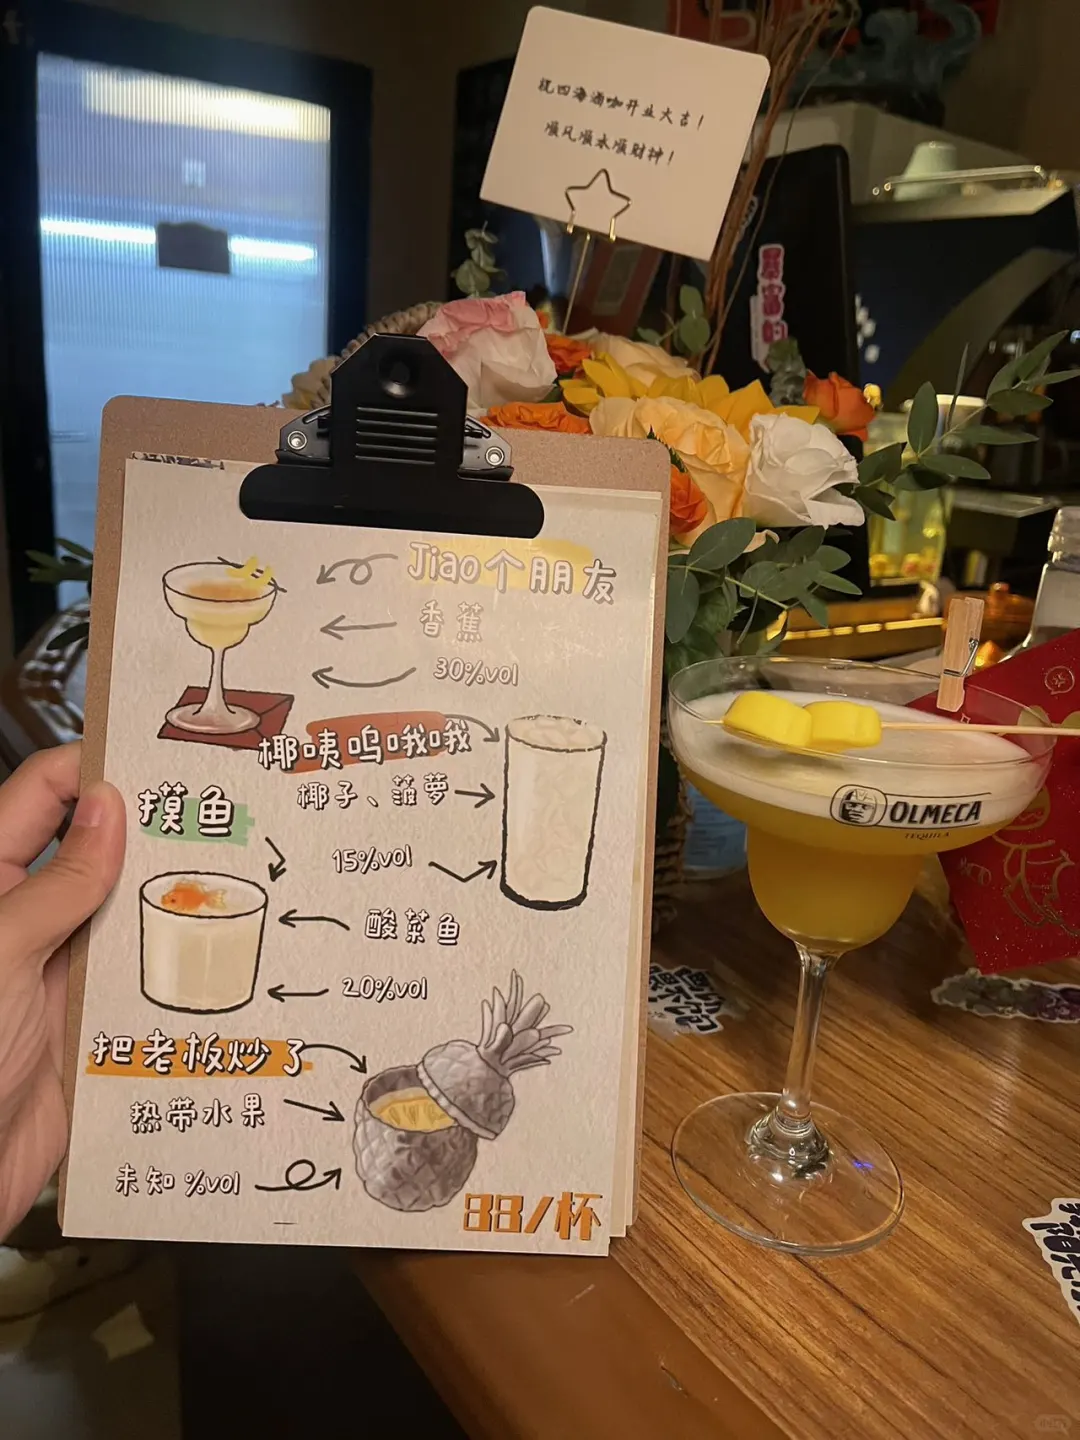 祝四海酒咖开业大吉！
顺风顺水顺财神！
暴富的
Jiao个朋友
香蕉
30%vol
椰咦呜哦哦
椰子、菠萝
15%vol
摸鱼
酸菜鱼
20%vol
把老板炒了
热带水果
未知%vol
88/杯
OLMECA
TEQUILA